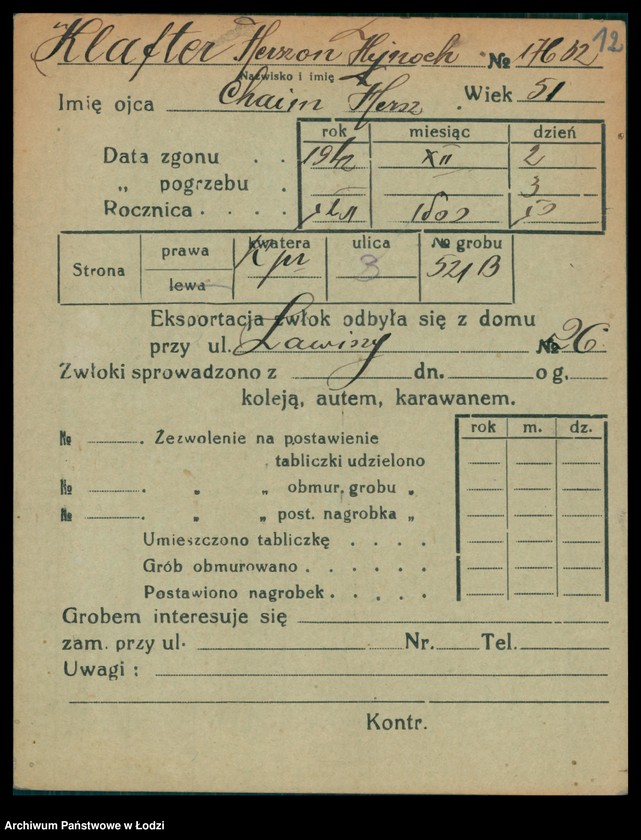 Klafter Herszon Hejnoch № 17632 12
Nazwisko i imię
Imię ojca Chaim Hersz Wiek 51
rok miesiąc dzień
Data zgonu . . 1942 XII 2
„ pogrzebu . 3
Rocznica . . . .
Strona prawa lewa kwatera K pr ulica 8 № grobu 521 B
Eksportacja zwłok odbyła się z domu
przy ul. Lawiny № 26
Zwłoki sprowadzono z dn. o g,
koleją, autem, karawanem.
rok m. dz.
№ . Zezwolenie na postawienie
tabliczki udzielono
№ . „ „ obmur. grobu „
№ . „ „ post. nagrobka „
Umieszczono tabliczkę . . . .
Grób obmurowano . . . . .
Postawiono nagrobek . . . .
Grobem interesuje się
zam. przy ul. Nr. Tel.
Uwagi :
Kontr.
Archiwum Państwowe w Łodzi